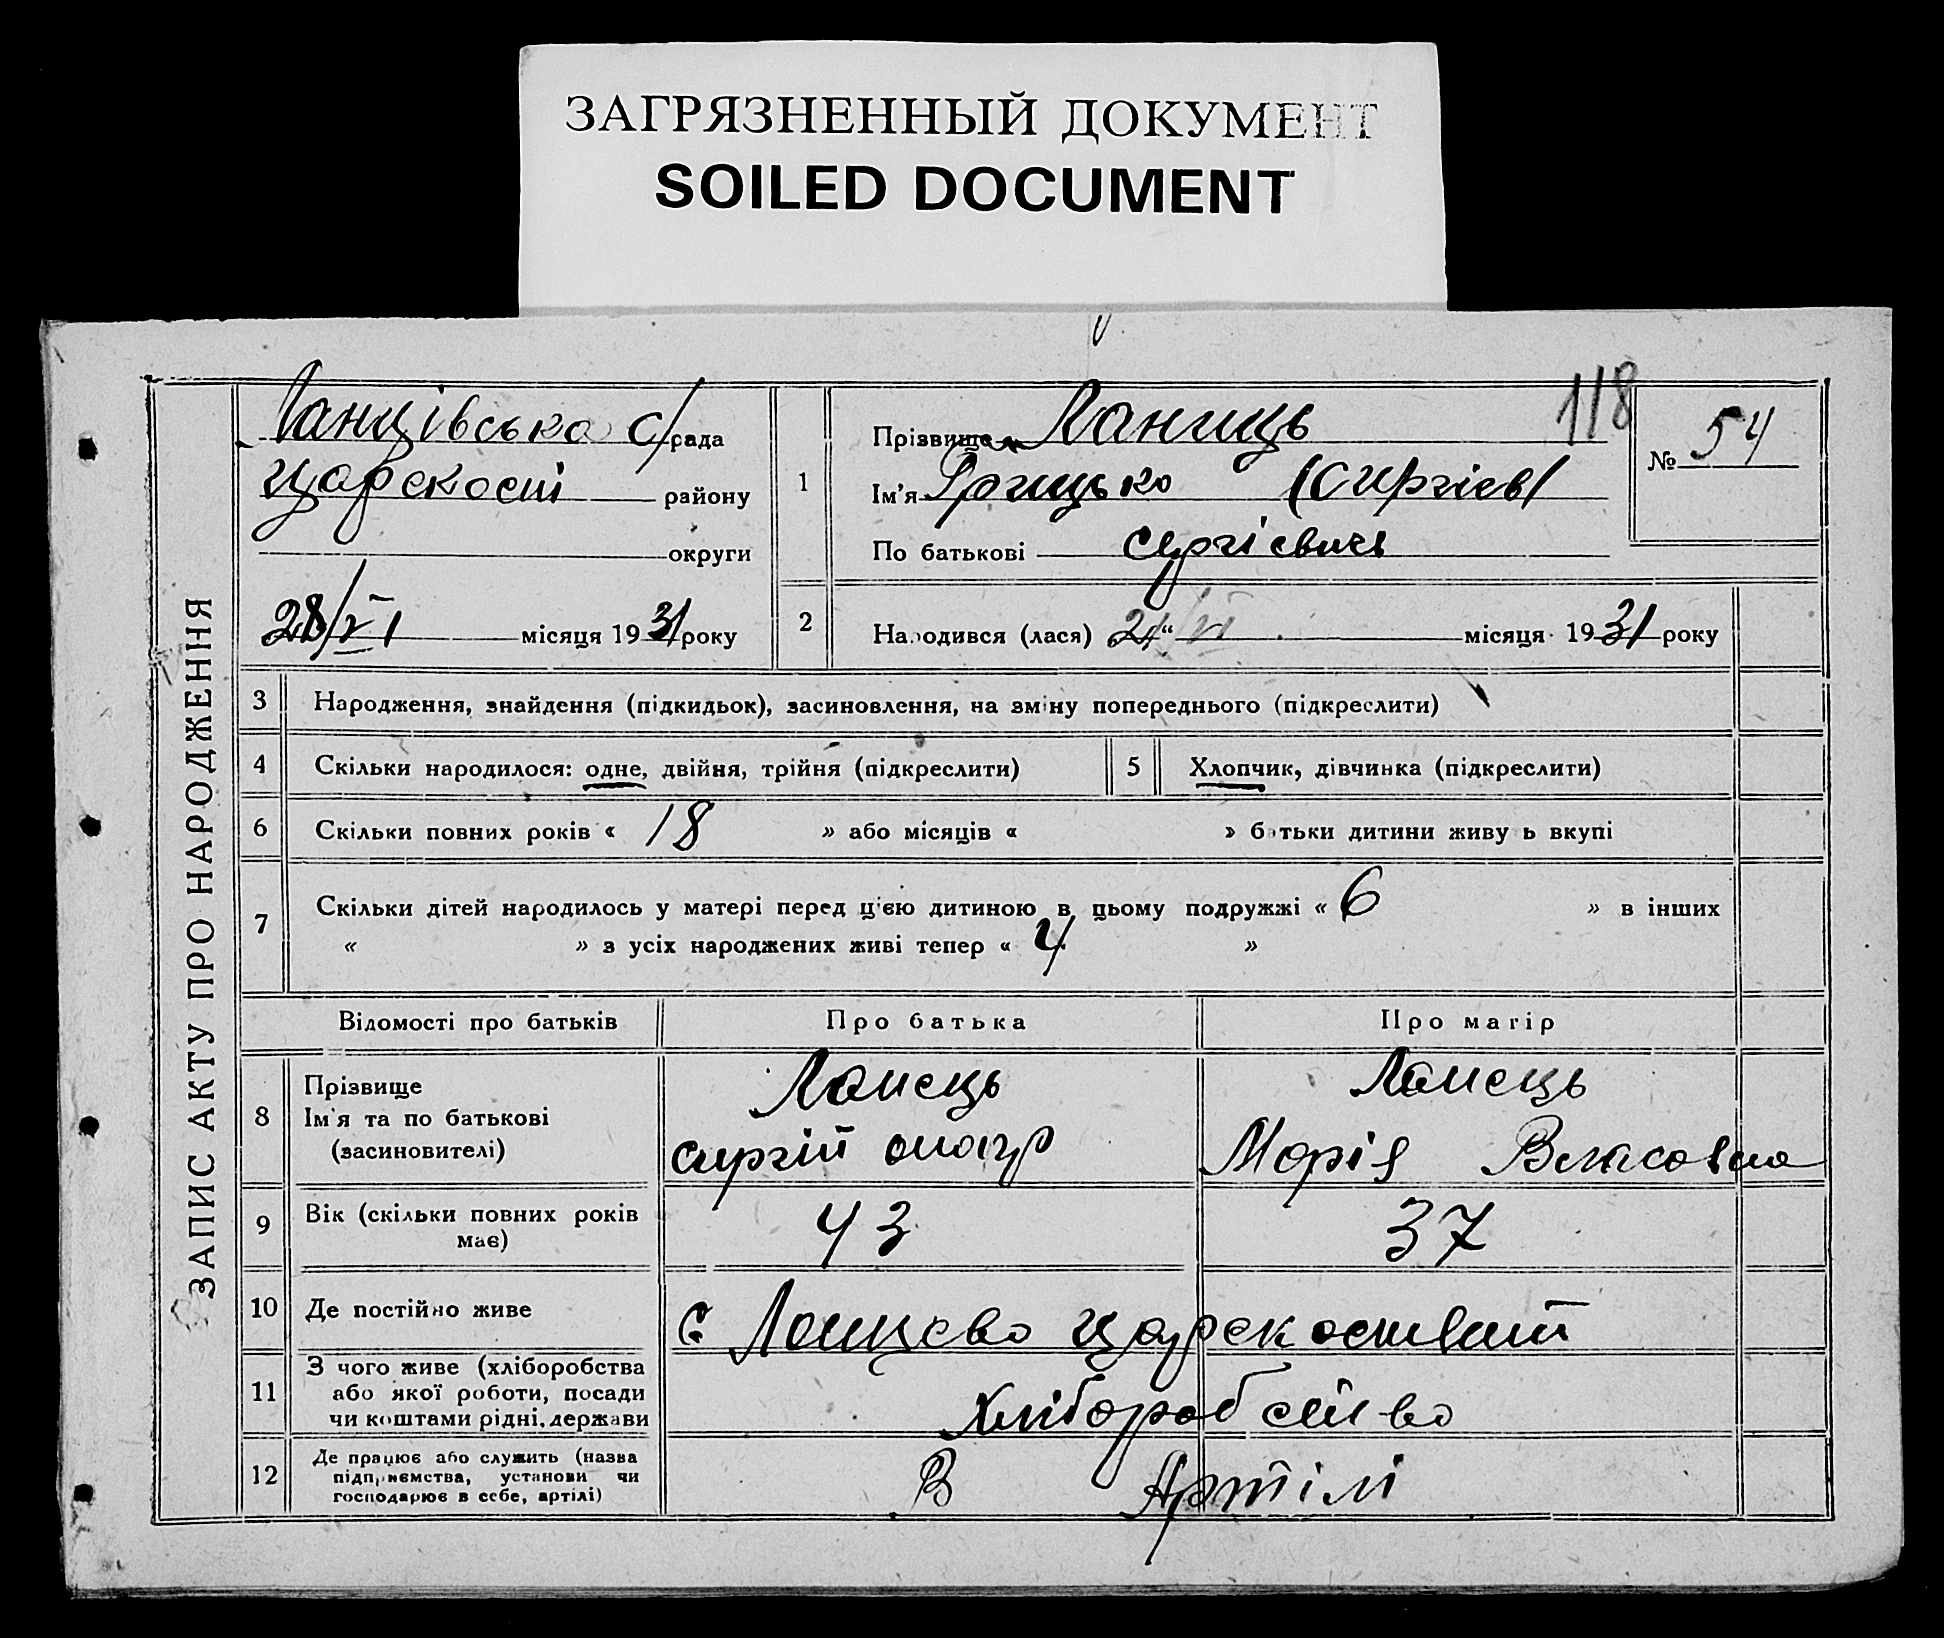 ЗАГРЯЗНЕННЫЙ ДОКУМЕНТ
SOILED DOCUMENT
118
ЗАПИС АКТУ ПРО НАРОДЖЕННЯ
Ланцівська с/рада
району
округи
28/VI місяця 1931 року
1
Прізвище Ланиць
Ім'я Грицько (Сиргієв)
По батькові Сергієвич
№ 54
2
Народився (лася) 24 “ VI місяця 1931 року
3 Народження, знайдення (підкидьок), засиновлення, на зміну попереднього (підкреслити)
4 Скільки народилося: одне, двійня, трійня (підкреслити) 5 Хлопчик, дівчинка (підкреслити)
6 Скільки повних років « 18 » або місяців « » батьки дитини живуть вкупі
7 Скільки дітей народилось у матері перед цією дитиною в цьому подружжі « 6 » в інших
« » з усіх народжених живі тепер « 4 »
Відомості про батьків Про батька Про матір
8 Прізвище
Ім'я та по батькові
(засиновителі)
Ланець Ланець
Сиргій Марія Власовна
9 Вік (скільки повних років
має)
43 37
10 Де постійно живе с Ланцево
11 З чого живе (хліборобства
або якої роботи, посади
чи коштами рідні, держави
Хліборобство
12 Де працює або служить (назва
підприємства, установи чи
господарює в себе, артілі)
В Артілі